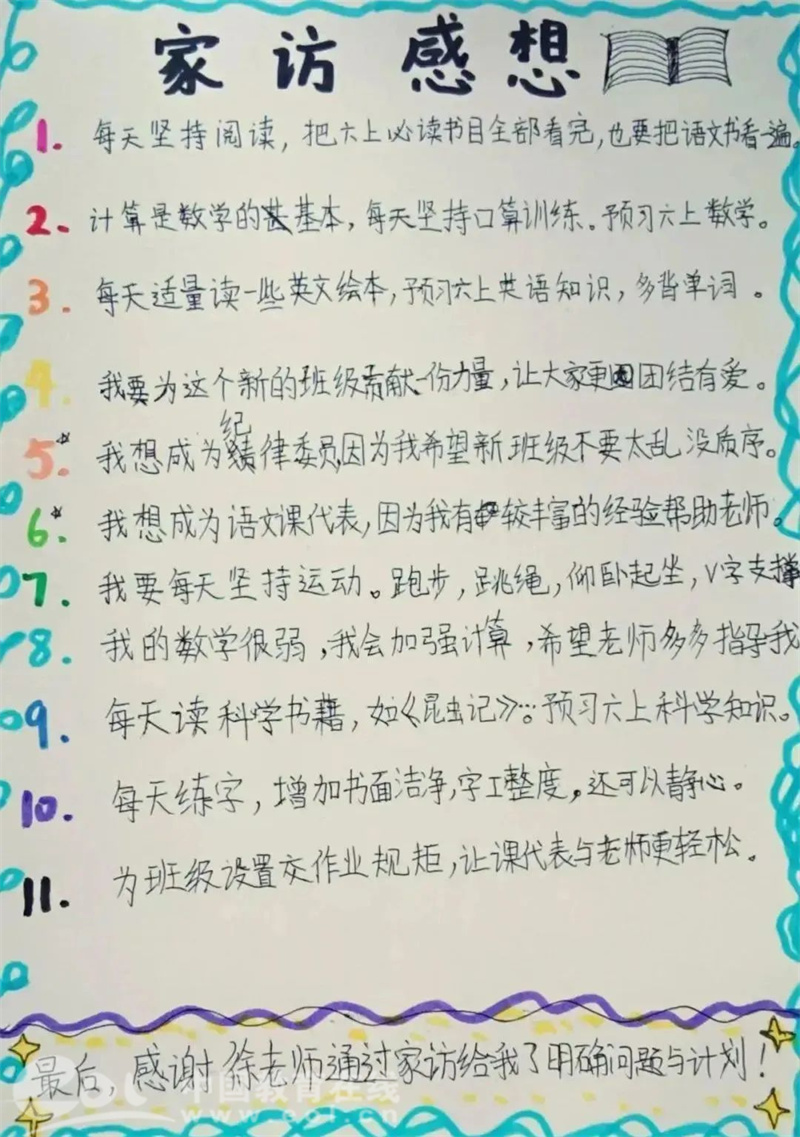 家访感想
1. 每天坚持阅读，把六上必读书目全部看完，也要把语文书看一遍。
2. 计算是数学的基本，每天坚持口算训练。预习六上数学。
3. 每天适量读一些英文绘本，预习六上英语知识，多背单词。
4. 我要为这个新的班级贡献一份力量，让大家更团结有爱。
5. 我想成为纪律委员，因为我希望新班级不要太乱没质序。
6. 我想成为语文课代表，因为我有较丰富的经验帮助老师。
7. 我要每天坚持运动。跑步，跳绳，仰卧起坐，V字支撑
8. 我的数学很弱，我会加强计算，希望老师多多指导我
9. 每天读科学书籍，如《昆虫记》…。预习六上科学知识。
10. 每天练字，增加书面洁净，字工整度，还可以静心。
11. 为班级设置交作业规矩，让课代表与老师更轻松。
最后，感谢徐老师通过家访给我了明确问题与计划！
中国教育在线
www.eol.cn